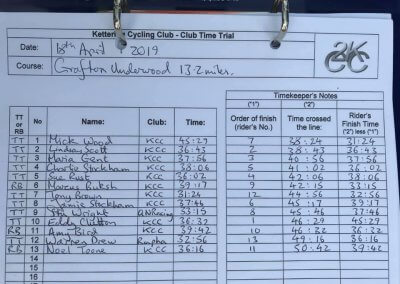 Kettering Cycling Club - Club Time Trial
Date: 18th April 2019
Course: Grafton Underwood 13.2 miles.
Timekeeper's Notes
TT or RB No Name: Club: Time: ("1") Order of finish (rider's No.) ("2") Time crossed the line: ("3") Rider's Finish Time ("2" less "1")
TT 1 Mick Wood KCC 45:29 7 38:24 31:24
TT 2 Lindsay Scott KCC 36:43 2 38:43 36:43
TT 3 Maria Gent KCC 37:56 3 40:56 37:56
TT 4 Charlie Stickham KCC 38:06 5 41:02 36:02
TT 5 Sue Rust KCC 36:02 4 42:06 38:06
RB 6 Marcus KCC 39:17 9 42:15 33:15
TT 7 Tony Brown KCC 31:24 12 44:56 32:56
TT 8 Jamie Stickham KCC 37:46 6 45:17 39:17
TT 9 Phil Wright 33:15 8 45:46 37:46
TT 10 Eddy KCC 36:32 1 46:29 45:29
RB 11 Amy Bird KCC 39:42 10 46:32 36:32
TT 12 Warren Drew Rapha 32:56 13 49:16 36:16
RB 13 Noel Toone KCC 36:16 11 50:42 39:42
14
15
16